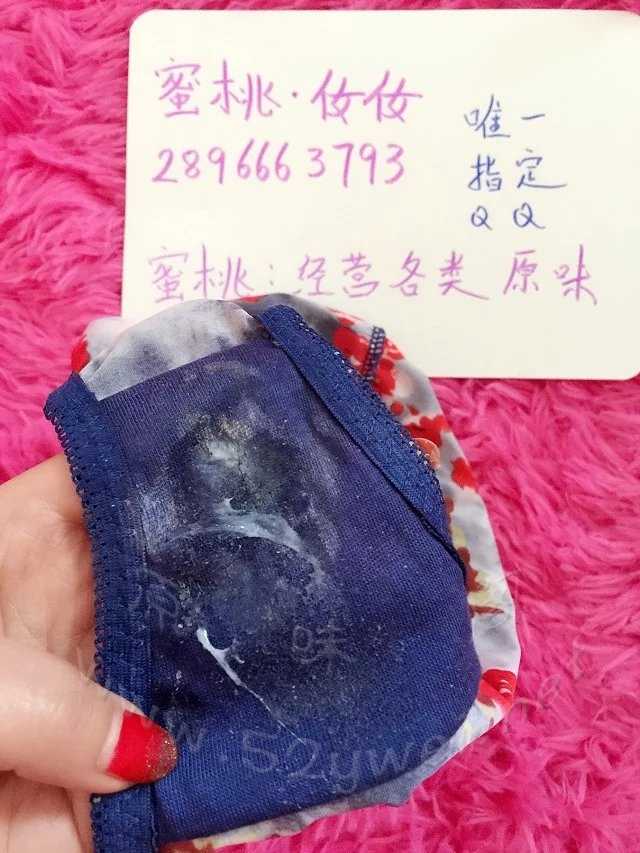 蜜桃·伩伩
2896663793
唯一
指定
QQ
蜜桃：经营各类原味
原味
www.52ywe